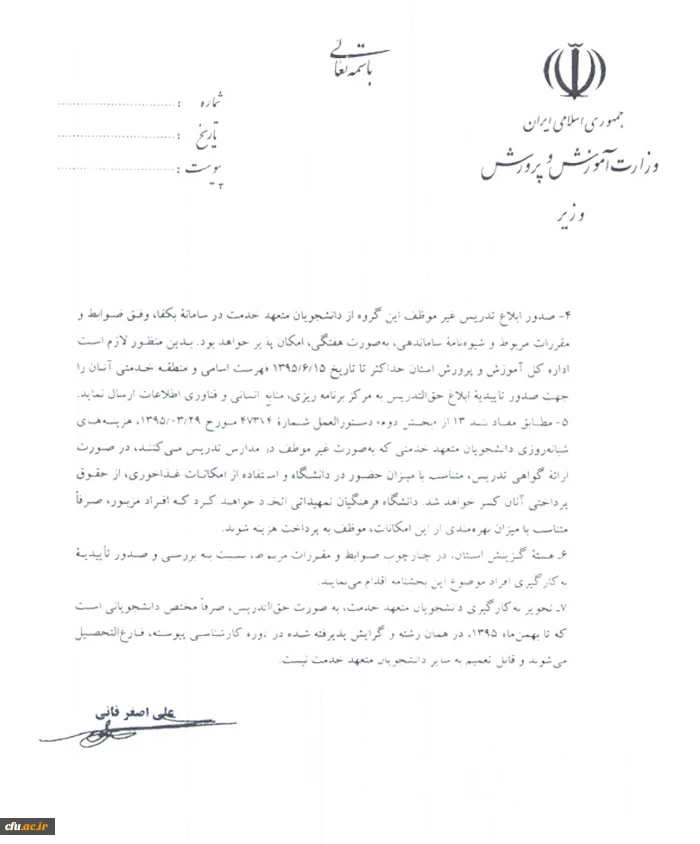 باسمه تعالی
جمهوری اسلامی ایران
وزارت آموزش و پرورش
وزیر
شماره :
تاریخ :
پیوست :
۴- صدور ابلاغ تدریس غیر موظف این گروه از دانشجویان متعهد خدمت در سامانهٔ بکفا، وفق ضوابط و
مقررات مربوط و شیوه‌نامهٔ ساماندهی، به‌صورت هفتگی، امکان پذیر خواهد بود. بدین منظور لازم است
اداره کل آموزش و پرورش استان حداکثر تا تاریخ ۱۳۹۵/۶/۱۵ فهرست اسامی و منطقه خدمتی آنان را
جهت صدور تاییدیهٔ ابلاغ حق‌التدریس به مرکز برنامه ریزی، منابع انسانی و فناوری اطلاعات ارسال نماید.
۵- مطابق مفاد بند ۱۳ از «بخش دوم» دستورالعمل شمارهٔ ۴۷۳۱۴ مورخ ۱۳۹۵/۰۳/۲۹، هزینه‌های
شبانه‌روزی دانشجویان متعهد خدمتی که به‌صورت غیر موظف در مدارس تدریس می‌کنند، در صورت
ارائهٔ گواهی تدریس، متناسب با میزان حضور در دانشگاه و استفاده از امکانات غذاخوری، از حقوق
پرداختی آنان کسر خواهد شد. دانشگاه فرهنگیان تمهیداتی اتخاذ خواهد کرد که افراد مزبور، صرفاً
متناسب با میزان بهره‌مندی از این امکانات، موظف به پرداخت هزینه شوند.
۶- هستهٔ گزینش استان، در چارچوب ضوابط و مقررات مربوط، نسبت به بررسی و صدور تأییدیهٔ
به‌کارگیری افراد موضوع این بخشنامه اقدام می‌نمایند.
۷- تجویز به‌کارگیری دانشجویان متعهد خدمت، به صورت حق‌التدریس، صرفاً مختص دانشجویانی است
که تا بهمن‌ماه ۱۳۹۵، در همان رشته و گرایش پذیرفته شده در دوره کارشناسی پیوسته، فارغ‌التحصیل
می‌شوند و قابل تعمیم به سایر دانشجویان متعهد خدمت نیست.
علی اصغر فانی
cfu.ac.ir